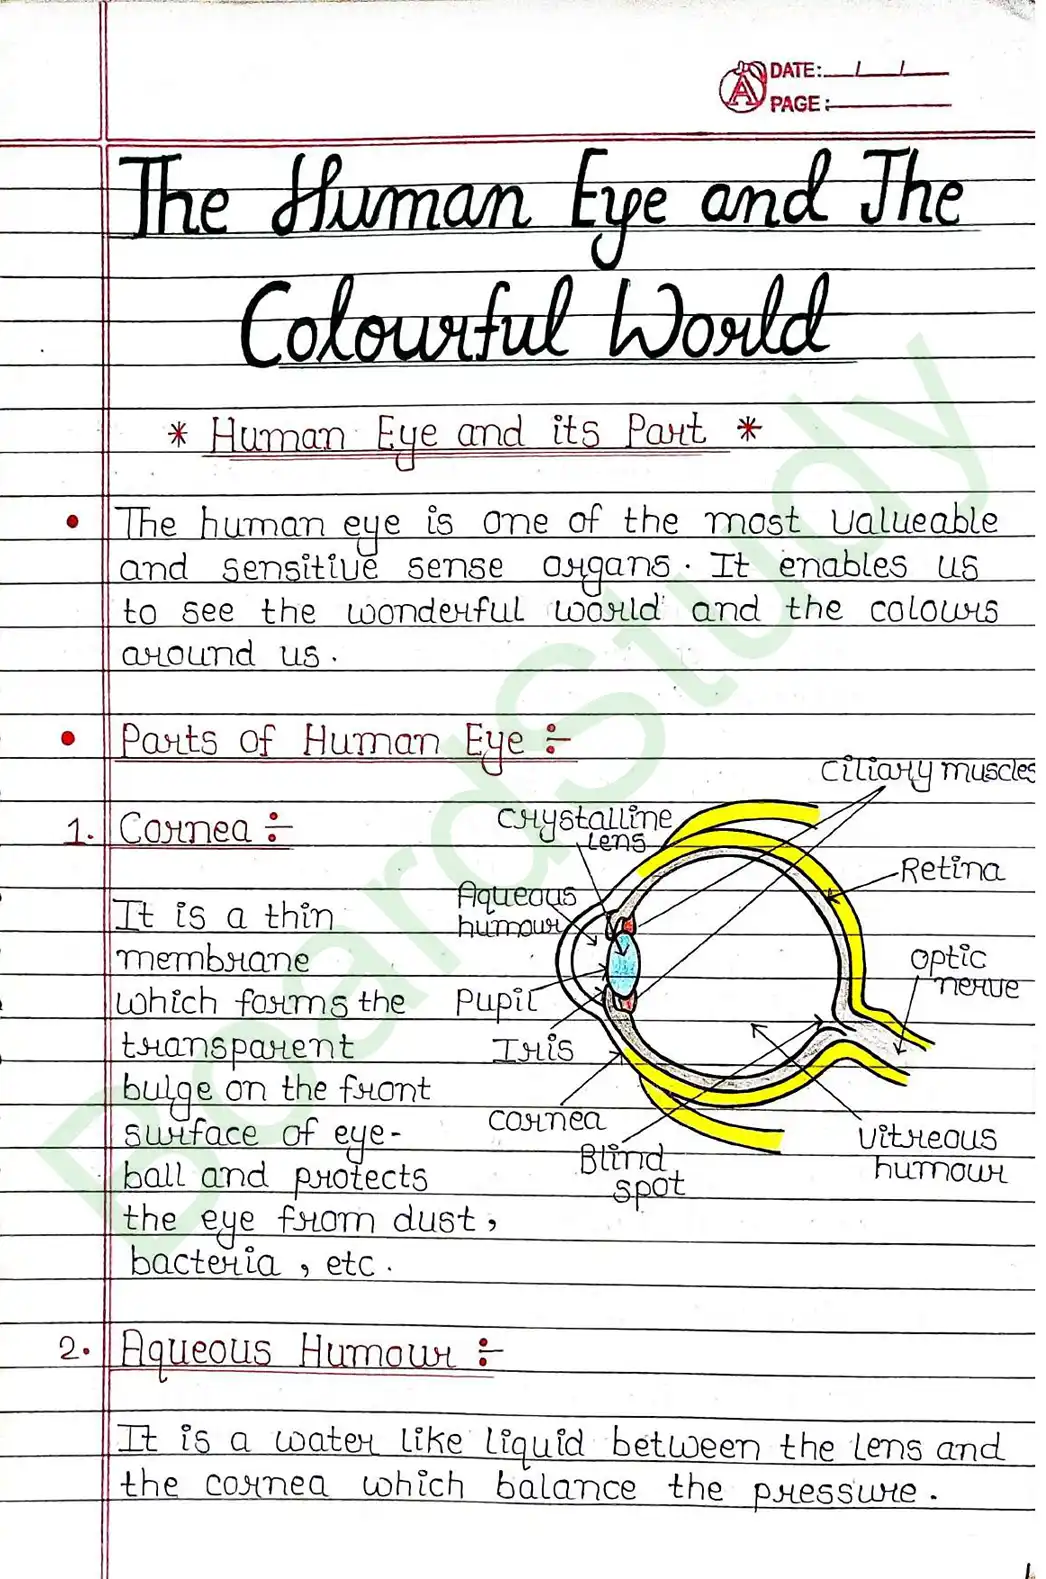 DATE: / /
PAGE:
The Human Eye and The
Colourful World
* Human Eye and its Part *
• The human eye is one of the most valueable
and sensitive sense organs. It enables us
to see the wonderful world and the colours
around us.
• Parts of Human Eye :-
ciliary muscles
crystalline
lens
Retina
Aqueous
humour
optic
nerve
Pupil
Iris
cornea
Blind
spot
vitreous
humour
1. Cornea :-
It is a thin
membrane
which forms the
transparent
bulge on the front
surface of eye-
ball and protects
the eye from dust,
bacteria, etc.
2. Aqueous Humour :-
It is a water like liquid between the lens and
the cornea which balance the pressure.
BoardStudy